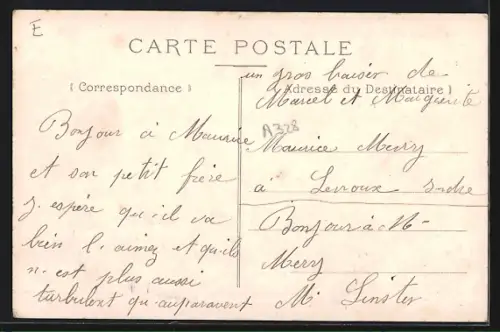 E
CARTE POSTALE
( Correspondance )
Bonjour à Maurice
et son petit frère
j. espère qu-il va
bien l. aimez et qu-ils
n. est plus aussi
turbulent qu. auparavent
un gros baiser de
(Adresse du Destinataire)
Marcel et Marguerite
A328
Maurice Mery
à Levroux Indre
Bonjour à M-
Mery
M. Linster